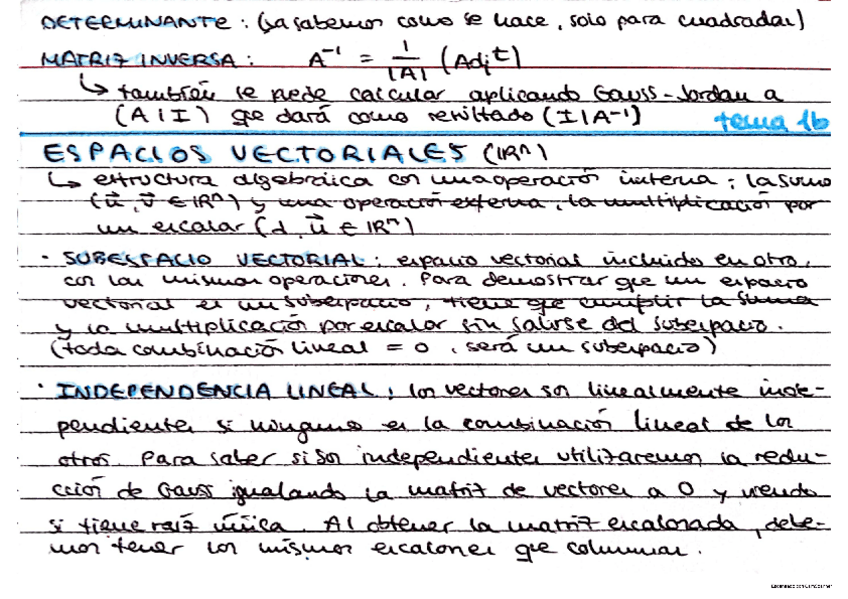 DETERMINANTE : (ya sabemos como se hace, solo para cuadradas)
MATRIZ INVERSA : A⁻¹ = 1/|A| (Adjᵗ)
↳ también se puede calcular aplicando Gauss-Jordan a
(A|I) que dará como resultado (I|A⁻¹)
tema 1b
ESPACIOS VECTORIALES (ℝⁿ)
↳ estructura algebráica con una operación interna; la suma
(u⃗, v⃗ ∈ ℝⁿ) y una operación externa, la multiplicación por
un escalar (λ, u⃗ ∈ ℝⁿ)
· SUBESPACIO VECTORIAL : espacio vectorial incluido en otro,
con las mismas operaciones. Para demostrar que un espacio
vectorial es un subespacio, tiene que cumplir la suma
y la multiplicación por escalar sin salirse del subespacio.
(toda combinación lineal = 0, será un subespacio)
· INDEPENDENCIA LINEAL; los vectores son linealmente inde-
pendientes si ninguno es la combinación lineal de los
otros. Para saber si son independientes utilizaremos la redu-
cción de Gauss igualando la matriz de vectores a 0 y viendo
si tiene raíz única. Al obtener la matriz escalonada, debe-
mos tener los mismos escalones que columnas.